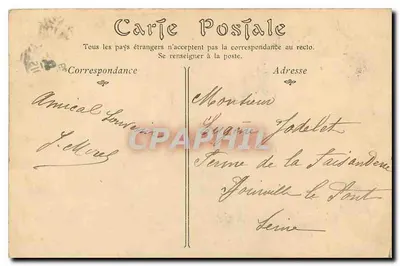 Carte Postale
Tous les pays étrangers n'acceptent pas la correspondance au recto.
Se renseigner à la poste.
Correspondance
Adresse
Amical Souvenir
J. Morel
Monsieur
Eugène Jodelet
Ferme de la Faisanderie
Joinville le Pont
Seine
CPAPHIL